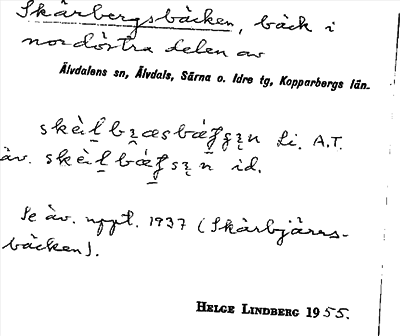 Skärbergsbäcken, bäck i
nordöstra delen av
Älvdalens sn, Älvdals, Särna o. Idre tg, Kopparbergs län.
Li. A.T.
äv. id.
Se äv. uppt. 1937 (Skärbjärrs-
bäcken).
HELGE LINDBERG 1955.